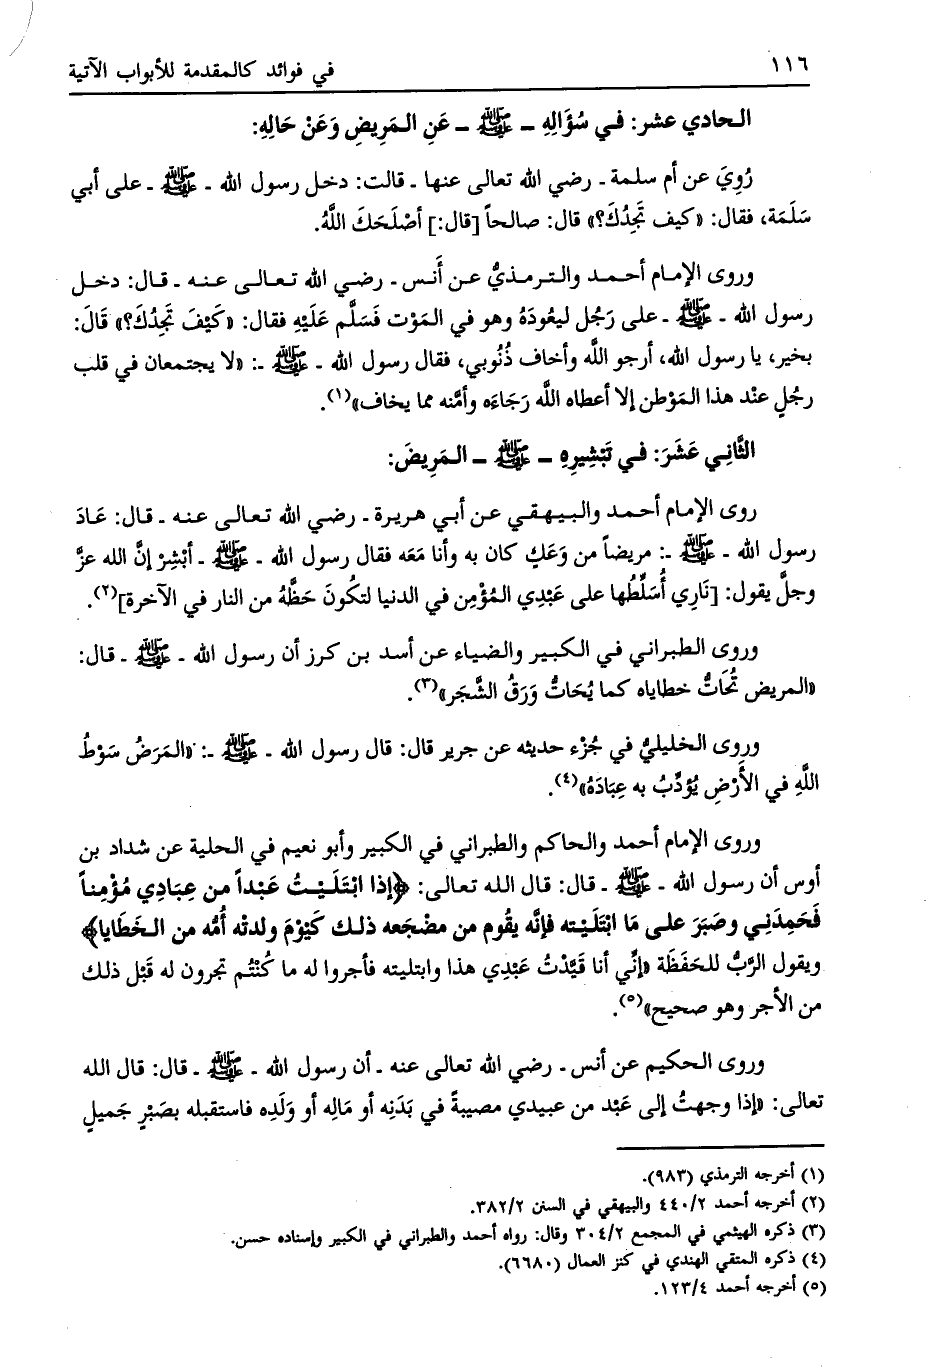 ١١٦
في فوائد كالمقدمة للأبواب الآتية
الحادي عشر: في سُؤَالِهِ ـ ﷺ ـ عَنِ المَرِيضِ وَعَنْ حَالِهِ:
رُوِيَ عن أم سلمة ـ رضي الله تعالى عنها ـ قالت: دخل رسول الله ـ ﷺ ـ على أبي
سَلَمَة، فقال: «كيف تَجِدُكَ؟» قال: صالحاً [قال:] أصْلَحَكَ اللَّهُ.
وروى الإمام أحمد والترمذيُّ عن أَنس ـ رضي الله تعالى عنه ـ قال: دخل
رسول الله ـ ﷺ ـ على رَجُل ليعُودَهُ وهو في المَوْت فَسَلَّم عَلَيْهِ فقال: «كَيْفَ تَجِدُكَ؟» قَالَ:
بخير، يا رسول اللهِ، أرجو اللَّه وأخاف ذُنُوبي، فقال رسول الله ـ ﷺ ـ: «لا يجتمعان في قلب
رجُلٍ عنْد هذا المَوْطن إلا أعطاه اللَّه رَجَاءَه وأمَّنه مما يخاف»(١).
الثَّانِي عَشَرَ: في تَبْشِيرِهِ ـ ﷺ ـ المَرِيضَ:
روى الإمام أحمد والبيهقي عن أبي هريرة ـ رضي الله تعالى عنه ـ قال: عَادَ
رسول الله ـ ﷺ ـ: مريضاً من وَعَكٍ كان به وأنا مَعَه فقال رسول الله ـ ﷺ ـ أبْشِرْ إنَّ الله عزَّ
وجلَّ يقول: [نَارِي أُسَلِّطُها على عَبْدِي المُؤْمِن في الدنيا لتكُونَ حَظَّهُ من النار في الآخرة](٢).
وروى الطبراني في الكبير والضياء عن أسد بن كرز أن رسول الله ـ ﷺ ـ قال:
«المريض تُحَاتُّ خطاياه كما يُحَاتُّ وَرَقُ الشَّجَر»(٣).
وروى الخليليُّ في جُزْء حديثه عن جرير قال: قال رسول الله ـ ﷺ ـ: «المَرَضُ سَوْطُ
اللَّهِ في الأَرْضِ يُؤدِّبُ به عِبَادَهُ»(٤).
وروى الإمام أحمد والحاكم والطبراني في الكبير وأبو نعيم في الحلية عن شداد بن
أوس أن رسول الله ـ ﷺ ـ قال: قال الله تعالى: ﴿إذا ابْتَلَيْتُ عَبْداً من عِبَادِي مُؤْمِناً
فَحَمِدَنِي وصَبَرَ على مَا ابْتَلَيْته فإنَّه يقُوم من مضْجَعه ذلك كَيَوْمَ ولدته أُمُّه من الخَطَايا﴾
ويقول الرَّبُّ للحَفَظَة «إنِّي أنا قَيَّدْتُ عَبْدِي هذا وابتليته فأجروا له ما كُنْتُم تجرون له قَبْل ذلك
من الأجر وهو صحيح»(٥).
وروى الحكيم عن أنس ـ رضي الله تعالى عنه ـ أن رسول الله ـ ﷺ ـ قال: قال الله
تعالى: «إذا وجهتُ إلى عَبْد من عبيدي مصيبةً في بَدَنِه أو مَالِه أو وَلَدِه فاستقبله بصَبْرٍ جَميلٍ
(١) أخرجه الترمذي (٩٨٣).
(٢) أخرجه أحمد ٤٤٠/٢ والبيهقي في السنن ٣٨٢/٢.
(٣) ذكره الهيثمي في المجمع ٣٠٤/٢ وقال: رواه أحمد والطبراني في الكبير وإسناده حسن.
(٤) ذكره المتقي الهندي في كنز العمال (٦٦٨٠).
(٥) أخرجه أحمد ١٢٣/٤.